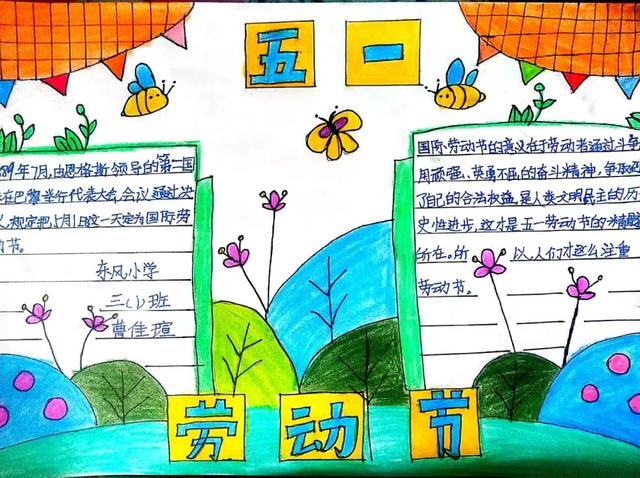 五一
89年7月,由恩格斯领导的第二国
在巴黎举行代表大会,会议通过决
规定把5月1日这一天定为国际劳
节。
东风小学
三(1)班
曹佳瑄
国际劳动节的意义在于劳动者通过斗争
用顽强、英勇不屈的奋斗精神,争取
了自己的合法权益,是人类文明民主的历
史性进步,这才是五一劳动节的精髓
所在。所以,人们才这么注重
劳动节。
劳动节